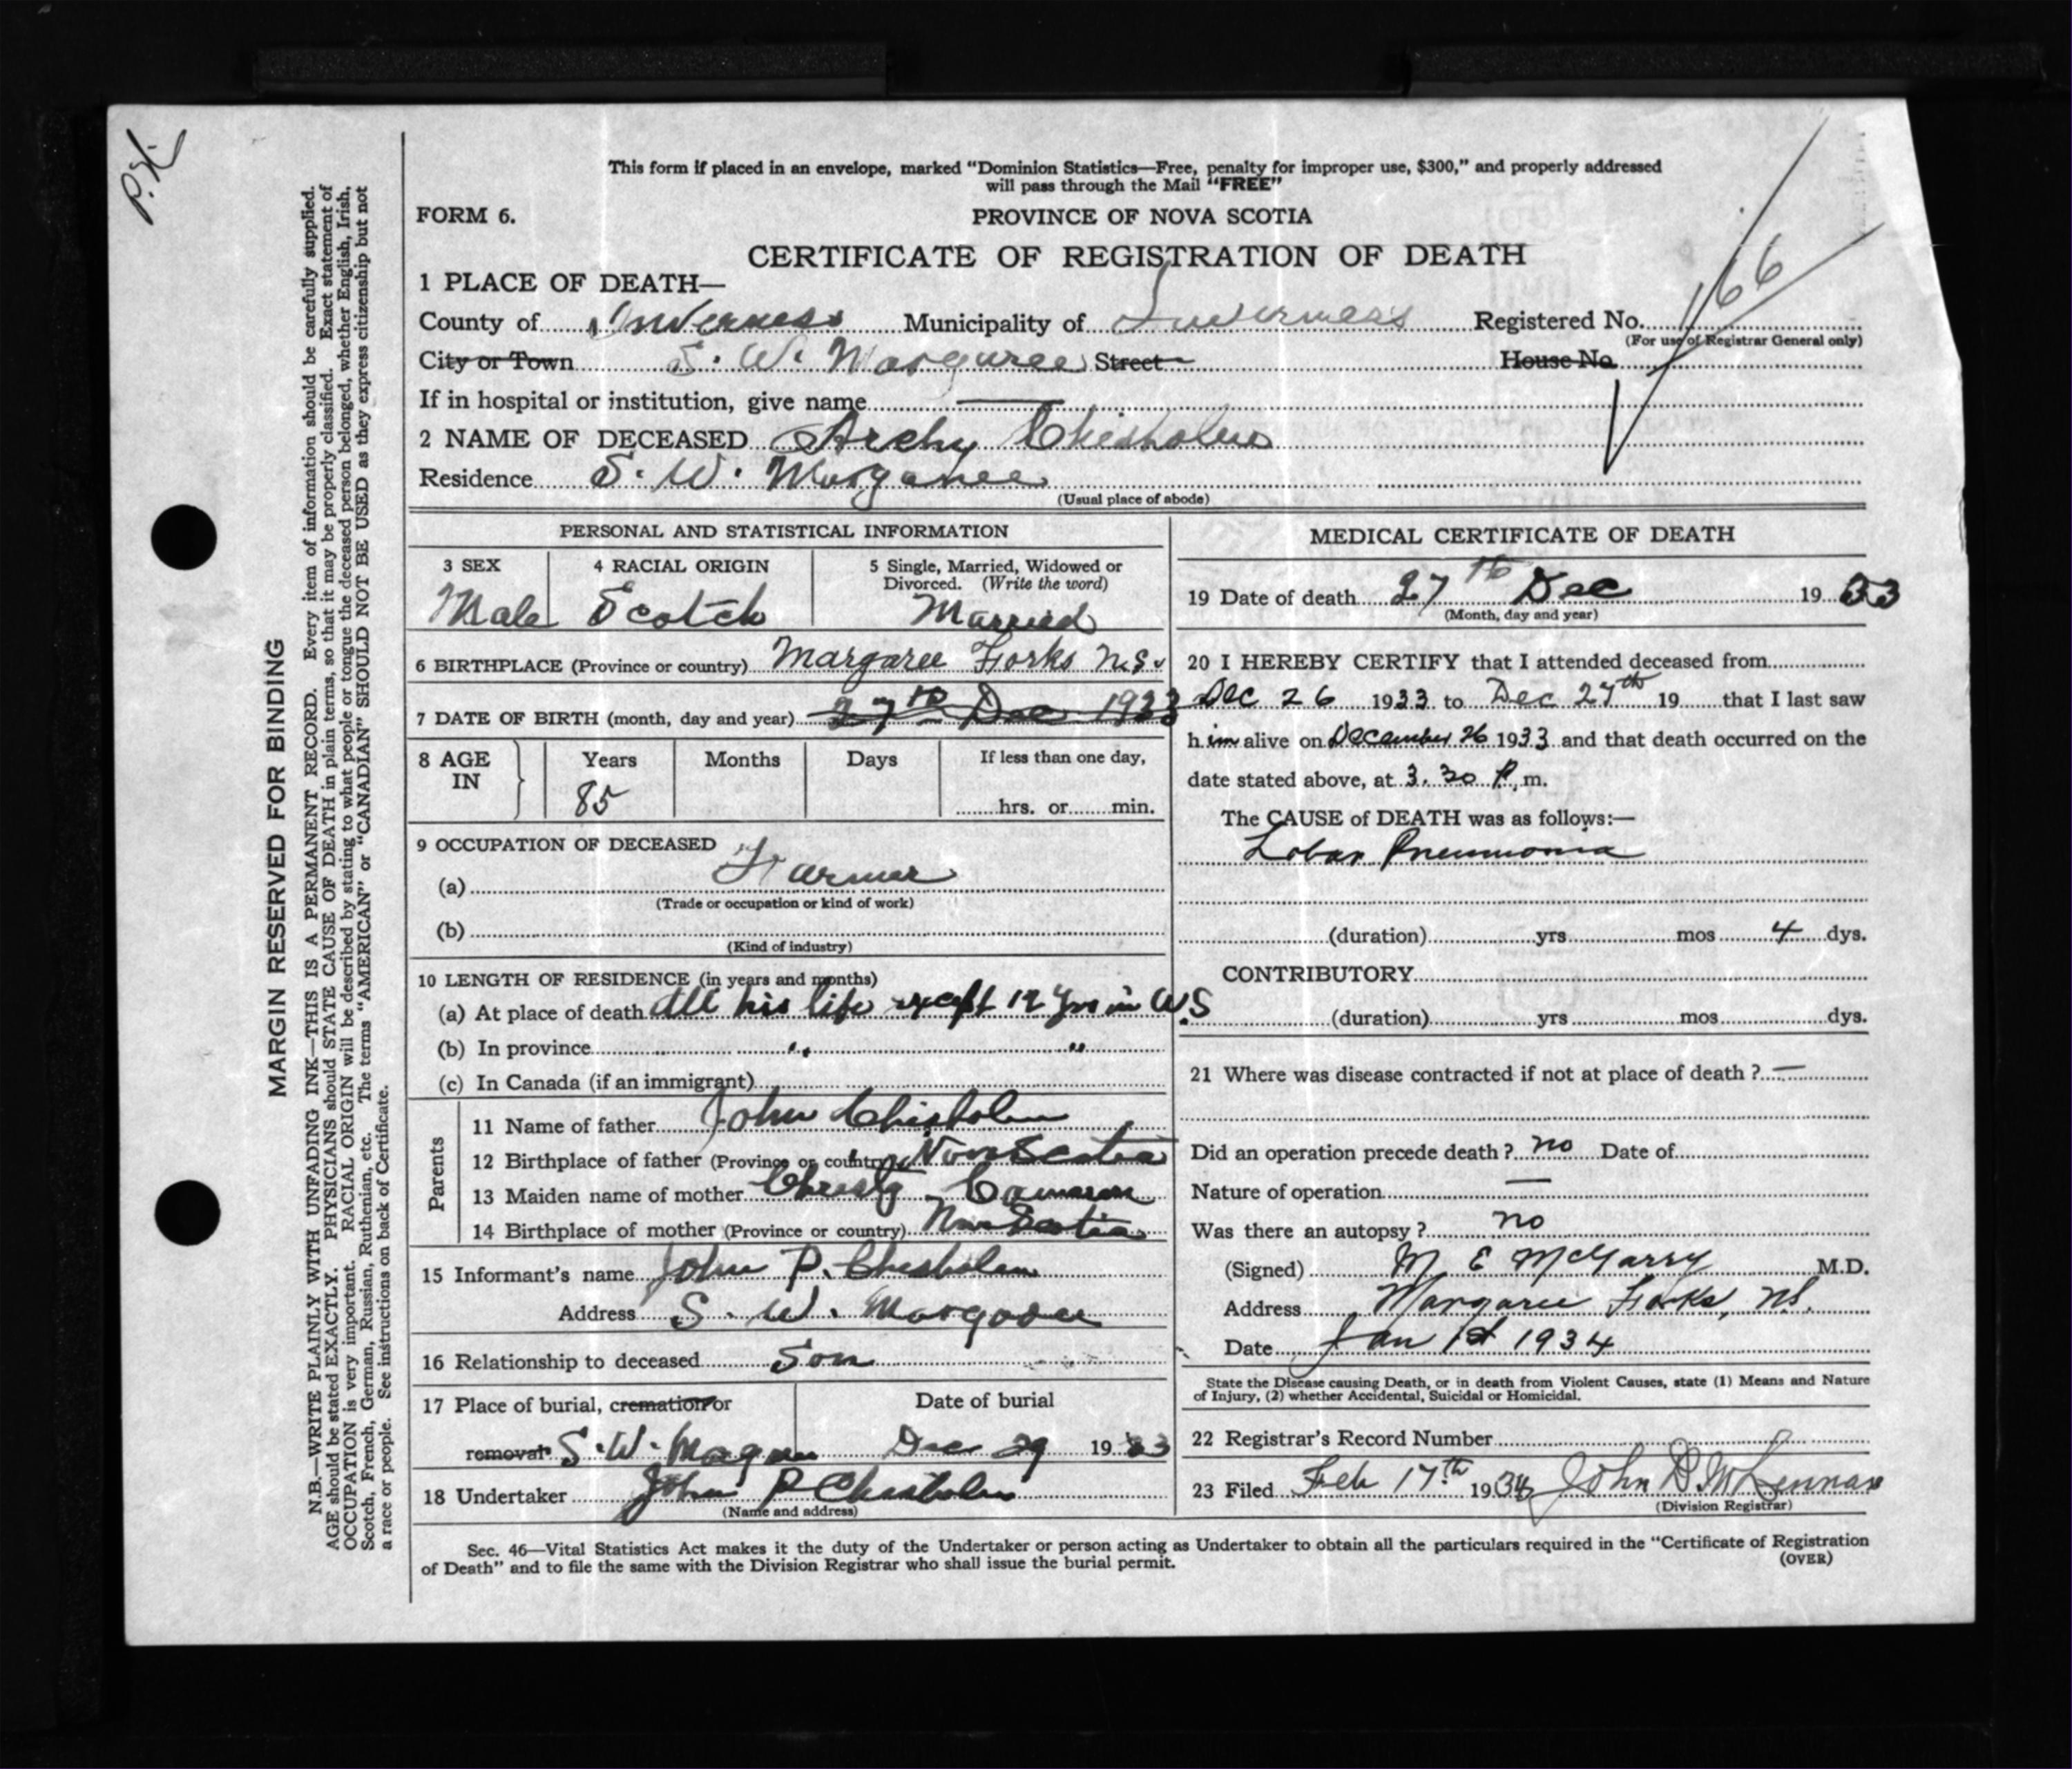 P.H.
MARGIN RESERVED FOR BINDING
N.B.—WRITE PLAINLY WITH UNFADING INK—THIS IS A PERMANENT RECORD. Every item of information should be carefully supplied.
AGE should be stated EXACTLY. PHYSICIANS should STATE CAUSE OF DEATH in plain terms, so that it may be properly classified. Exact statement of
OCCUPATION is very important. RACIAL ORIGIN will be described by stating to what people or tongue the deceased person belonged, whether English, Irish,
Scotch, French, German, Russian, Ruthenian, etc. The terms "AMERICAN" or "CANADIAN" SHOULD NOT BE USED as they express citizenship but not
a race or people. See instructions on back of Certificate.
This form if placed in an envelope, marked "Dominion Statistics—Free, penalty for improper use, $300," and properly addressed
will pass through the Mail "FREE"
FORM 6. PROVINCE OF NOVA SCOTIA
CERTIFICATE OF REGISTRATION OF DEATH
1 PLACE OF DEATH—
County of Inverness Municipality of Inverness Registered No. 166
(For use of Registrar General only)
City or Town S. W. Margaree Street House No.
If in hospital or institution, give name —
2 NAME OF DECEASED Archy Chisholm
Residence S. W. Margaree
(Usual place of abode)
PERSONAL AND STATISTICAL INFORMATION
3 SEX 4 RACIAL ORIGIN 5 Single, Married, Widowed or
Divorced. (Write the word)
Male Scotch Married
6 BIRTHPLACE (Province or country) Margaree Forks N.S.
7 DATE OF BIRTH (month, day and year) 27th Dec 1933
8 AGE IN Years Months Days If less than one day,
85 hrs. or min.
9 OCCUPATION OF DECEASED
(a) Farmer
(Trade or occupation or kind of work)
(b)
(Kind of industry)
10 LENGTH OF RESIDENCE (in years and months)
(a) At place of death All his life except 12 yrs in U.S
(b) In province " "
(c) In Canada (if an immigrant)
Parents
11 Name of father John Chisholm
12 Birthplace of father (Province or country) Nova Scotia
13 Maiden name of mother Christy Cameron
14 Birthplace of mother (Province or country) Nova Scotia
15 Informant's name John P. Chisholm
Address S. W. Margaree
16 Relationship to deceased Son
17 Place of burial, cremation or Date of burial
removal S. W. Margaree Dec 29 1933
18 Undertaker John P Chisholm
(Name and address)
MEDICAL CERTIFICATE OF DEATH
19 Date of death 27th Dec 1933
(Month, day and year)
20 I HEREBY CERTIFY that I attended deceased from
Dec 26 1933 to Dec 27th 19 that I last saw
him alive on December 26 1933 and that death occurred on the
date stated above, at 3.30 P.m.
The CAUSE of DEATH was as follows:—
Lobar Pneumonia
(duration) yrs mos 4 dys.
CONTRIBUTORY
(duration) yrs mos dys.
21 Where was disease contracted if not at place of death ? —
Did an operation precede death ? no Date of
Nature of operation —
Was there an autopsy ? no
(Signed) M E McGarry M.D.
Address Margaree Forks, N.S.
Date Jan 1st 1934
State the Disease causing Death, or in death from Violent Causes, state (1) Means and Nature
of Injury, (2) whether Accidental, Suicidal or Homicidal.
22 Registrar's Record Number
23 Filed Feb 17th 1934 John D. McLennan
(Division Registrar)
Sec. 46—Vital Statistics Act makes it the duty of the Undertaker or person acting as Undertaker to obtain all the particulars required in the "Certificate of Registration
of Death" and to file the same with the Division Registrar who shall issue the burial permit. (OVER)